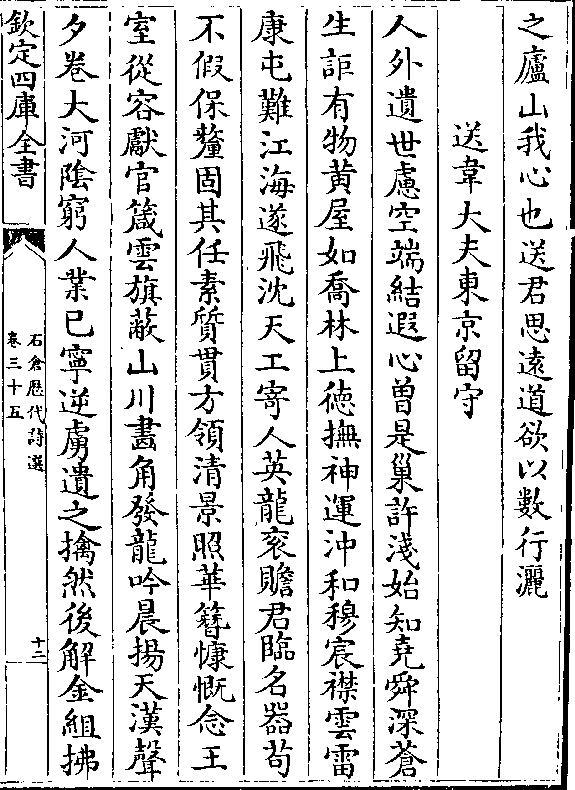 之廬山我心也送君思遠道欲以數行灑
送韋大夫東京留守
人外遺世慮空端結遐心曽是巢許淺始知堯舜深蒼
生詎有物黄屋如喬林上徳撫神運沖和穆宸襟雲雷
康屯難江海遂飛沈天工寄人英龍衮瞻君臨名器苟
不假保釐固其任素質貫方領清景照華簪慷慨念王
室從容獻官箴雲旗蔽山川畫角發龍吟晨揚天漢聲
夕卷大河陰窮人業已寧逆虜遺之擒然後解金組拂
欽定四庫全書
石倉歴代詩選
卷三十五
十二